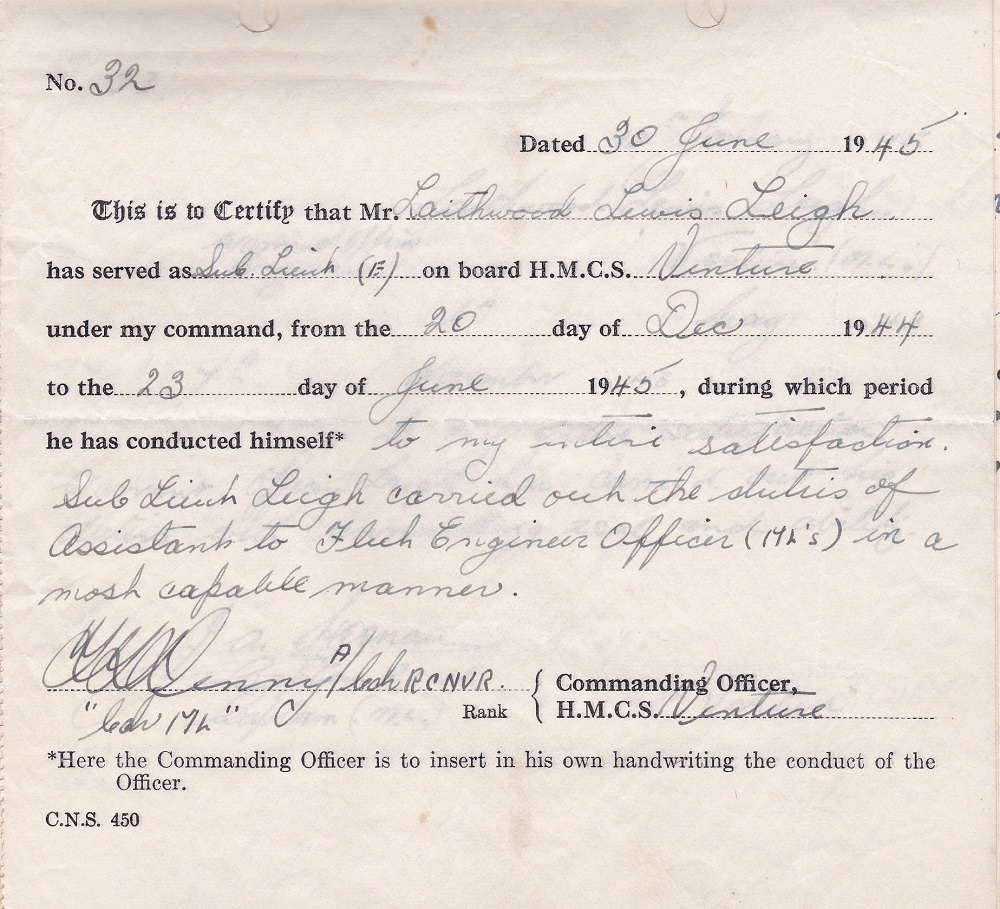 No. 32
Dated 30 June 1945
This is to Certify that Mr. Laithwood Lewis Leigh
has served as Sub Lieut (E) on board H.M.C.S. Venture
under my command, from the 20 day of Dec 1944
to the 23 day of June 1945, during which period
he has conducted himself* to my entire satisfaction.
Sub Lieut Leigh carried out the duties of
Assistant to Fleet Engineer Officer (ML's) in a
most capable manner.
Denny A/Cdr RCNVR. Commanding Officer,
"Cdr ML" Rank H.M.C.S. Venture
*Here the Commanding Officer is to insert in his own handwriting the conduct of the
Officer.
C.N.S. 450